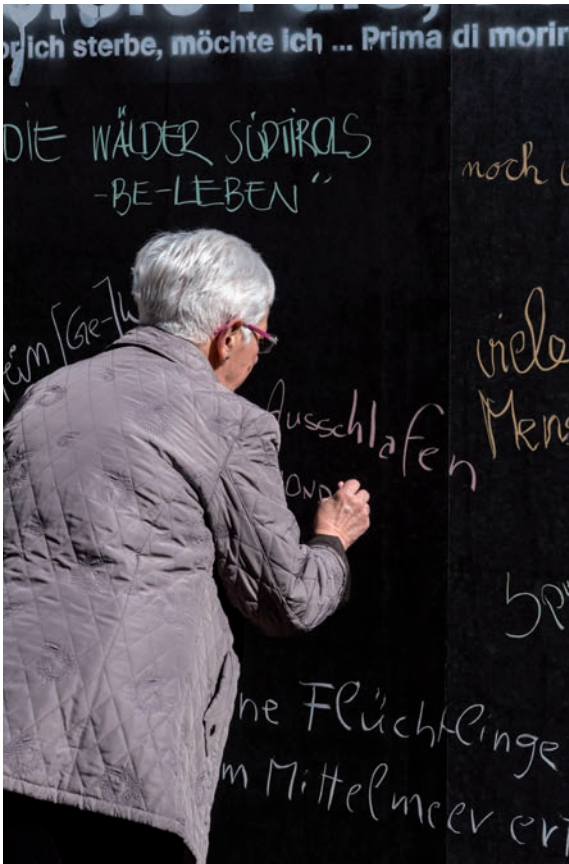 or ich sterbe, möchte ich ... Prima di morir
DIE WÄLDER SÜDTIROLS
-BE-LEBEN"
noch
viele
Mens
Ausschlafen
OND
ne Flüchtlinge
m Mittelmeer ert